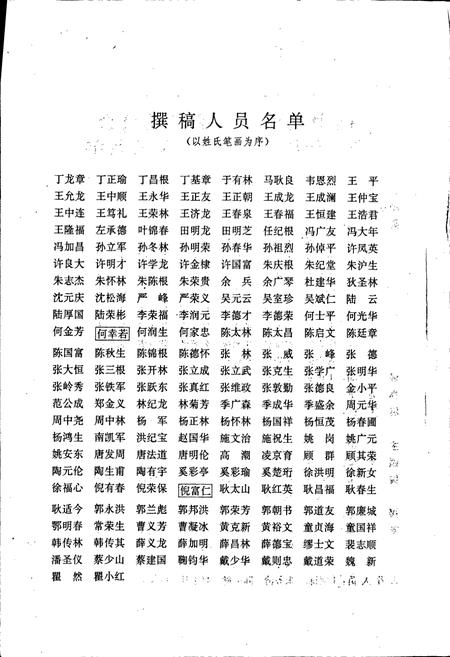 撰稿人员名单
(以姓氏笔画为序)
丁龙章 丁正瑜 丁昌根 丁基章 于有林 马耿良 韦恩烈 王平
王允龙 王中顺 王永华 王正友 王正朝 王成龙 王成澜 王仲宝
王中连 王笃礼 王荣林 王济龙 王春泉 王春福 王恒建 王浩君
王隆福 左承德 叶锦春 田明龙 田明芝 任纪根 冯广友 冯大年
冯加昌 孙立军 孙冬林 孙明荣 孙春华 孙祖烈 孙倬平 许凤英
许良大 许明才 许学龙 许金棣 许国富 朱庆根 朱纪堂 朱沪生
朱志杰 朱怀林 朱陈根 朱荣贵 余兵 余广琴 杜建华 狄圣林
沈元庆 沈松海 严峰 严荣义 吴元云 吴室珍 吴斌仁 陆云
陆厚国 陆荣彬 李荣福 李润元 李德才 李德荣 何士平 何光华
何金芳 何幸若 何润生 何家忠 陈太林 陈太昌 陈启文 陈廷章
陈国富 陈秋生 陈锦根 陈德怀 张林 张威 张峰 张德
张大恒 张三根 张开林 张立成 张立武 张克生 张学广 张明华
张岭秀 张铁军 张跃东 张真红 张维政 张敦勤 张德良 金小平
范公成 郑金义 林纪龙 林菊芳 季广森 季成华 季盛余 周元华
周中尧 周中林 杨军 杨正林 杨怀林 杨国祥 杨恒茂 杨春圃
杨鸿生 南凯军 洪纪宝 赵国华 施文治 施祝生 姚岗 姚广元
姚安东 唐发周 唐法道 唐明伦 高潮 凌京育 顾群 顾其荣
陶元伦 陶生甫 陶有宇 奚彩亭 奚彩瑜 奚楚珩 徐洪明 徐新女
徐福心 倪有春 倪荣保 倪富仁 耿太山 耿红英 耿昌福 耿春生
耿适今 郭永洪 郭兰彪 郭邦洪 郭荣芳 郭朝书 郭道友 郭廉城
鄂明春 常荣生 曹义芳 曹凝冰 黄克新 黄裕文 童贞海 童国祥
韩传林 韩传其 薛义龙 薛加明 薛昌林 薛德宝 缪士文 裴志顺
潘圣仪 蔡少山 蔡建国 鞠钧华 戴少华 戴则忠 戴道荣 魏新
瞿然 瞿小红